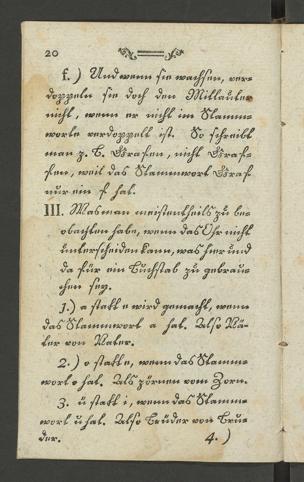 20
f.) Und wenn sie wachsen, ver=
doppeln sie doch den Mitlauter
nicht, wenn er nicht im Stamm=
worte verdoppelt ist. So schreibt
man z. B. Grafen, nicht Graf=
fen, weil das Stammwort Graf
nur ein f hat.
III. Was man meistentheils zu be=
obachten habe, wenn das Ohr nicht
unterscheiden kann, was hier und
da für ein Buchstab zu gebrau=
chen sey.
1.) a statt e wird gemacht, wenn
das Stammwort a hat. Also Vä=
ter von Vater.
2.) o statt e, wenn das Stamm=
wort o hat. Als zörnen vom Zorn.
3. ü statt i, wenn das Stamm=
wort u hat. Also Brüder von Bru=
der.
4.)